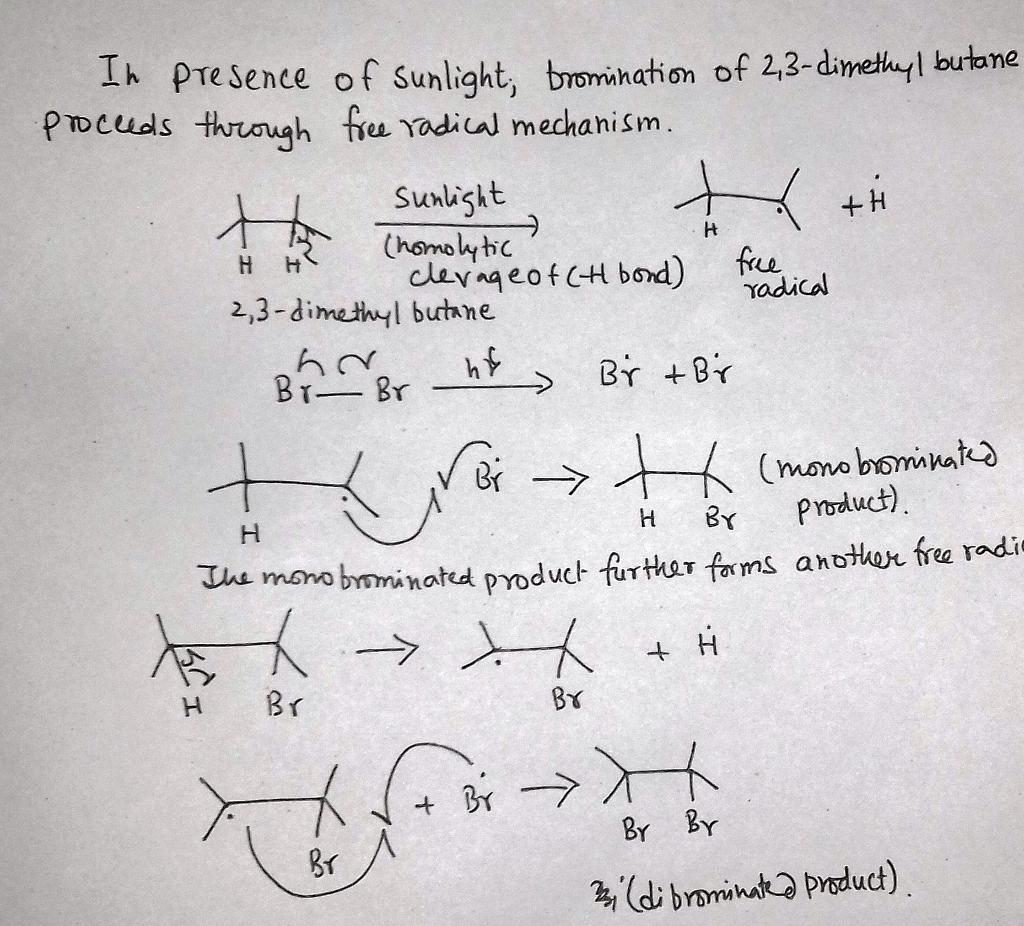 In presence of sunlight, bromination of 2,3-dimethyl butane
proceeds through free radical mechanism.
Sunlight
(homolytic
clevage of C-H bond)
+ Ḣ
H H
H
free
radical
2,3-dimethyl butane
Br — Br hf → Ḃr + Ḃr
H
Ḃr →
H Br
(mono brominated
product).
The mono brominated product further forms another free radic
H Br
→
Br
+ Ḣ
Br
+ Ḃr →
Br Br
(dibrominated product).